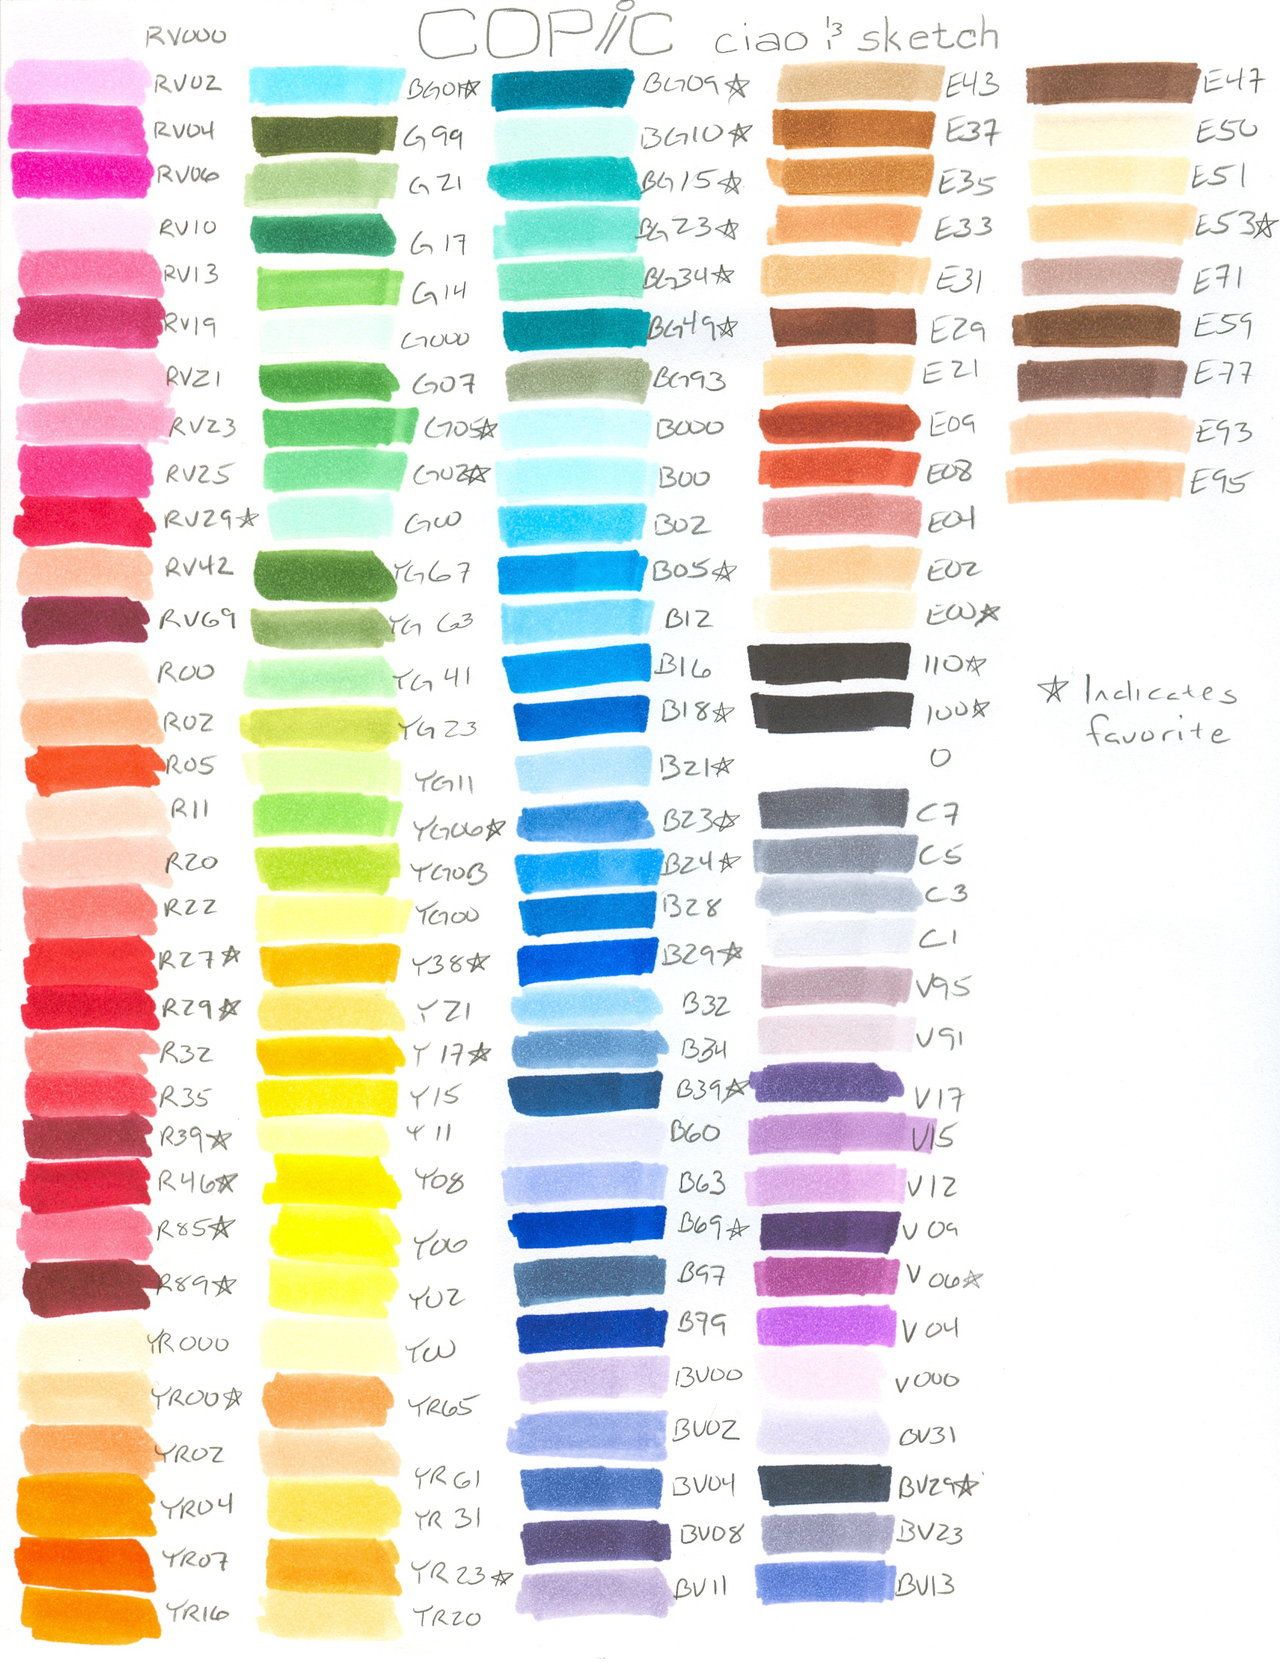 COPIC ciao & sketch
RV000
RV02
RV04
RV06
RV10
RV13
RV19
RV21
RV23
RV25
RV29☆
RV42
RV69
R00
R02
R05
R11
R20
R22
R27☆
R29☆
R32
R35
R39☆
R46☆
R85☆
R89☆
YR000
YR00☆
YR02
YR04
YR07
YR16
BG01☆
G99
G21
G17
G14
G000
G07
G05☆
G02☆
G00
YG67
YG63
YG41
YG23
YG11
YG06☆
YG03
YG00
Y38☆
Y21
Y17☆
Y15
Y11
Y08
Y06
Y02
Y00
YR65
YR61
YR31
YR23☆
YR20
BG09☆
BG10☆
BG15☆
BG23☆
BG34☆
BG49☆
BG93
B000
B00
B02
B05☆
B12
B16
B18☆
B21☆
B23☆
B24☆
B28
B29☆
B32
B34
B39☆
B60
B63
B69☆
B97
B79
BV00
BV02
BV04
BV08
BV11
E43
E37
E35
E33
E31
E29
E21
E09
E08
E04
E02
E00☆
110☆
100☆
0
C7
C5
C3
C1
V95
V91
V17
V15
V12
V09
V06☆
V04
V000
BV31
BV29☆
BV23
BV13
E47
E50
E51
E53☆
E71
E59
E77
E93
E95
☆ Indicates
favorite